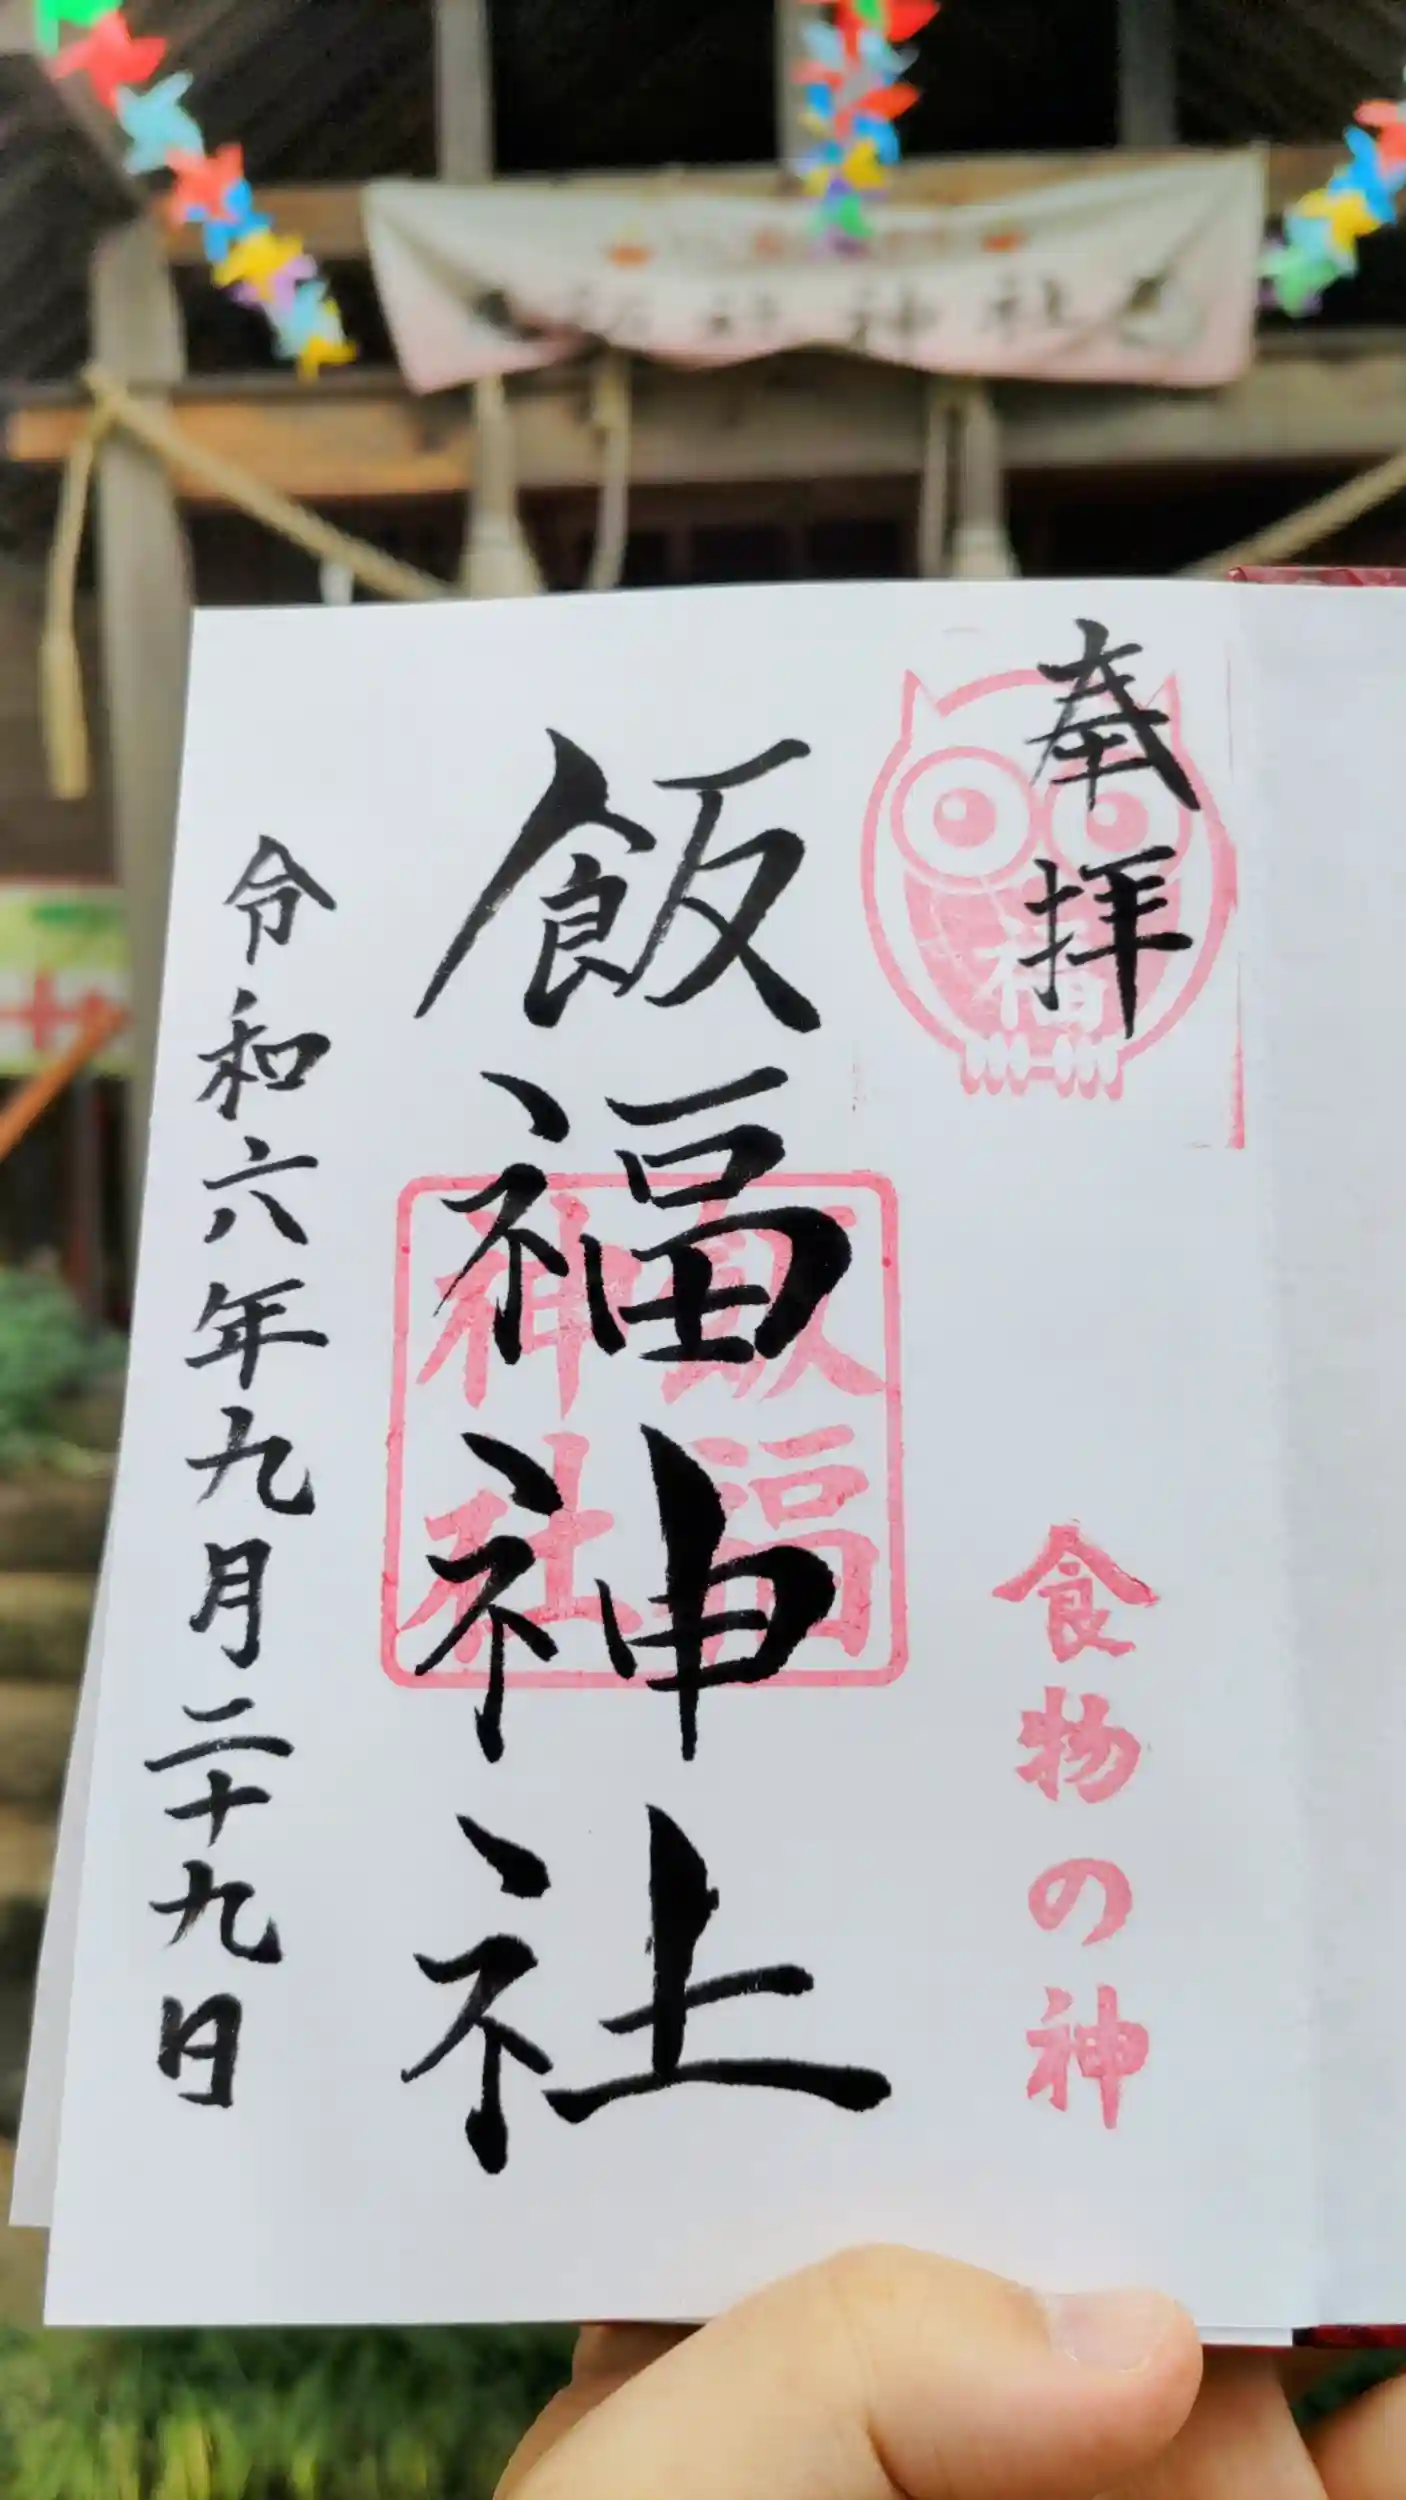 神社
奉拝
福
食物の神
飯福神社
飯福
神社
令和六年九月二十九日